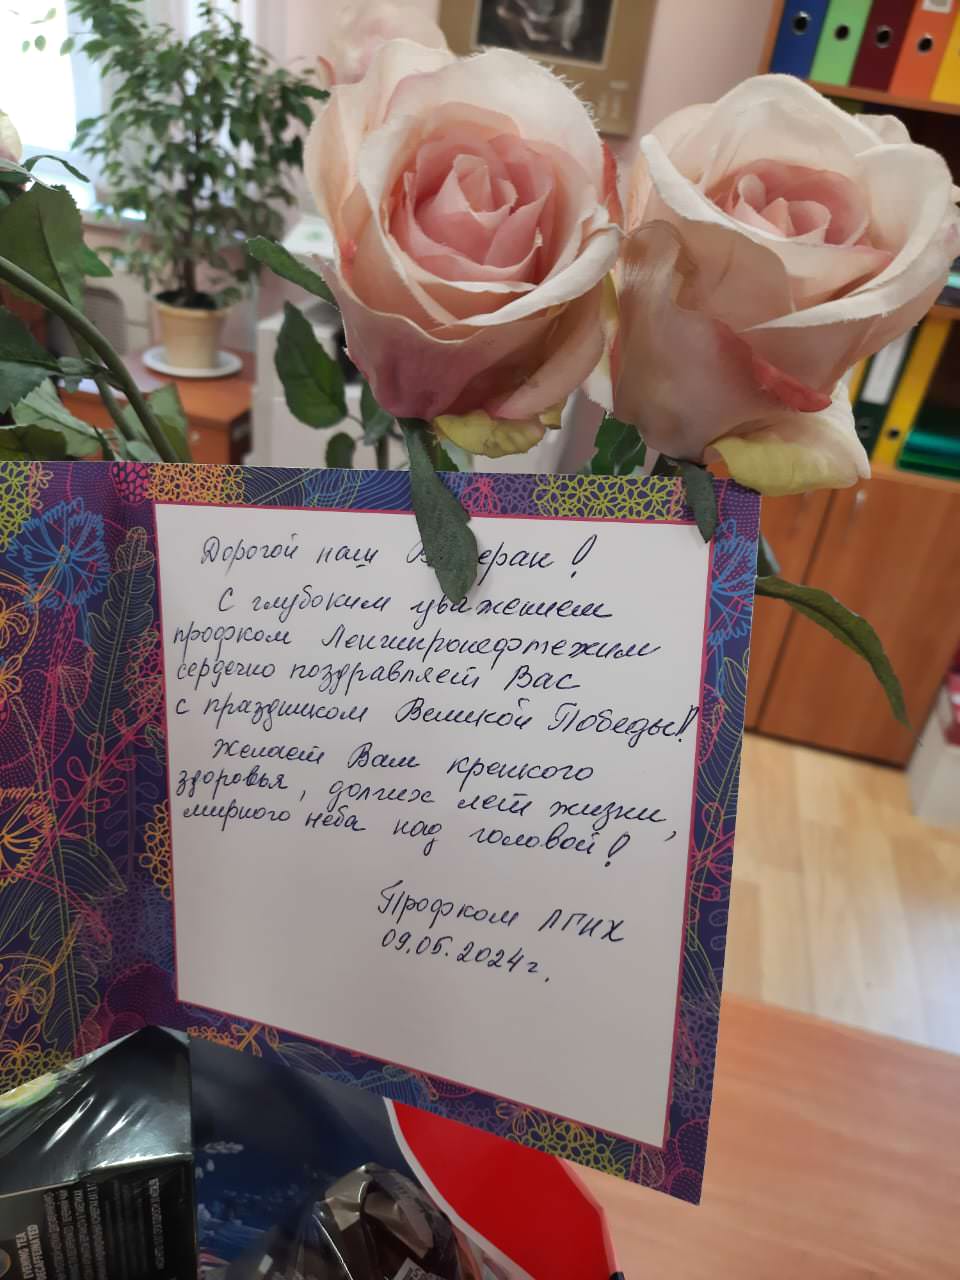 Дорогой наш Ветеран!
С глубоким уважением
профком Ленгипронефтехим
сердечно поздравляет Вас
с праздником Великой Победы!
Желает Вам крепкого
здоровья, долгих лет жизни,
мирного неба над головой!
Профком ЛГНХ
09.05.2024г.